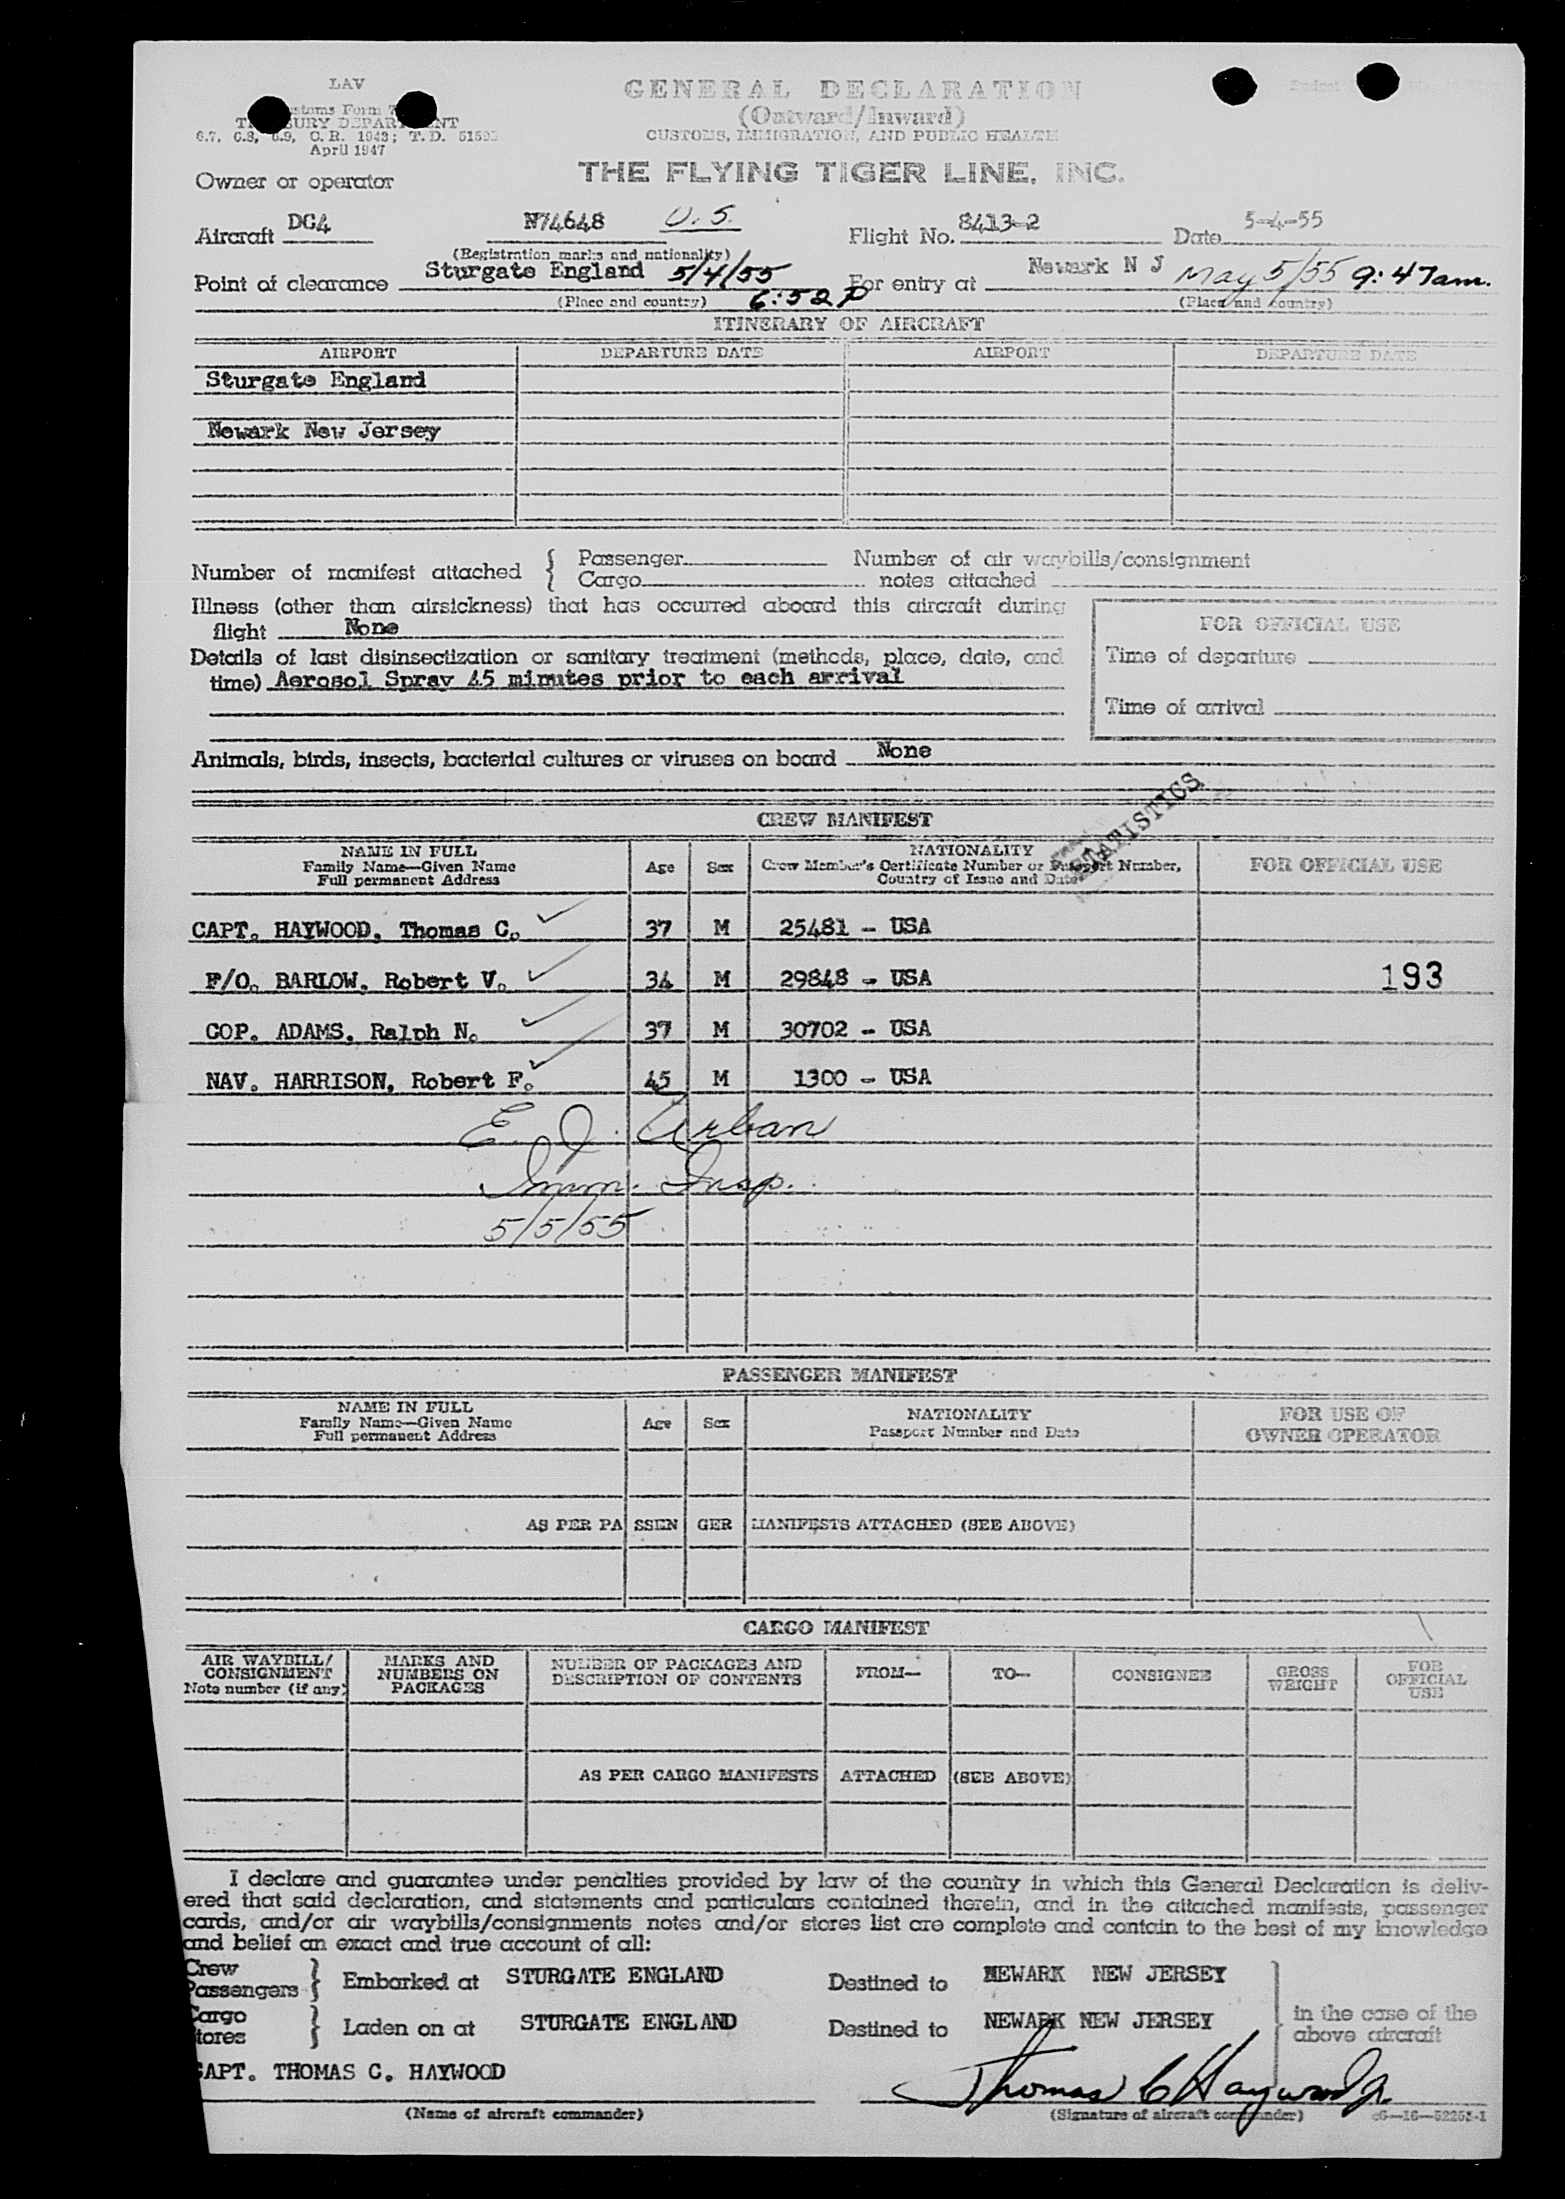 LAV
GENERAL DECLARATION
(Outward/Inward)
CUSTOMS, IMMIGRATION, AND PUBLIC HEALTH
6.7, 6.8, 6.9, C.R. 1943; T.D.
April 1947
THE FLYING TIGER LINE, INC.
Owner or operator
Aircraft DC4 N74648 U.S. Flight No. 8413-2 Date 5-4-55
(Registration marks and nationality)
Point of clearance Sturgate England 5/4/55 For entry at Newark N J May 5/55 9:47am.
(Place and country) 6:52 P (Place and country)
ITINERARY OF AIRCRAFT
AIRPORT DEPARTURE DATE AIRPORT DEPARTURE DATE
Sturgate England
Newark New Jersey
Number of manifest attached { Passenger Number of air waybills/consignment
Cargo notes attached
Illness (other than airsickness) that has occurred aboard this aircraft during
flight None
FOR OFFICIAL USE
Details of last disinsectization or sanitary treatment (methods, place, date, and
time) Aerosol Spray 45 minutes prior to each arrival
Time of departure
Time of arrival
Animals, birds, insects, bacterial cultures or viruses on board None
STATISTICS
CREW MANIFEST
NAME IN FULL
Family Name—Given Name
Full permanent Address
Age Sex
NATIONALITY
Crew Member's Certificate Number or Passport Number,
Country of Issue and Date
FOR OFFICIAL USE
CAPT. HAYWOOD, Thomas C. 37 M 25481 - USA
F/O. BARLOW, Robert V. 34 M 29848 - USA 193
COP. ADAMS, Ralph N. 37 M 30702 - USA
NAV. HARRISON, Robert F. 45 M 1300 - USA
E. J. Urban
Imm. Insp.
5/5/55
PASSENGER MANIFEST
NAME IN FULL
Family Name—Given Name
Full permanent Address
Age Sex
NATIONALITY
Passport Number and Date
FOR USE OF
OWNER OPERATOR
AS PER PASSENGER MANIFESTS ATTACHED (SEE ABOVE)
CARGO MANIFEST
AIR WAYBILL/
CONSIGNMENT
Note number (if any)
MARKS AND
NUMBERS ON
PACKAGES
NUMBER OF PACKAGES AND
DESCRIPTION OF CONTENTS
FROM— TO— CONSIGNEE
GROSS
WEIGHT
FOR
OFFICIAL
USE
AS PER CARGO MANIFESTS ATTACHED (SEE ABOVE)
I declare and guarantee under penalties provided by law of the country in which this General Declaration is deliv-
ered that said declaration, and statements and particulars contained therein, and in the attached manifests, passenger
cards, and/or air waybills/consignments notes and/or stores list are complete and contain to the best of my knowledge
and belief an exact and true account of all:
Crew
Passengers } Embarked at STURGATE ENGLAND Destined to NEWARK NEW JERSEY
Cargo
Stores } Laden on at STURGATE ENGLAND Destined to NEWARK NEW JERSEY
in the case of the
above aircraft
CAPT. THOMAS C. HAYWOOD Thomas C Haywood Jr.
(Name of aircraft commander) (Signature of aircraft commander)